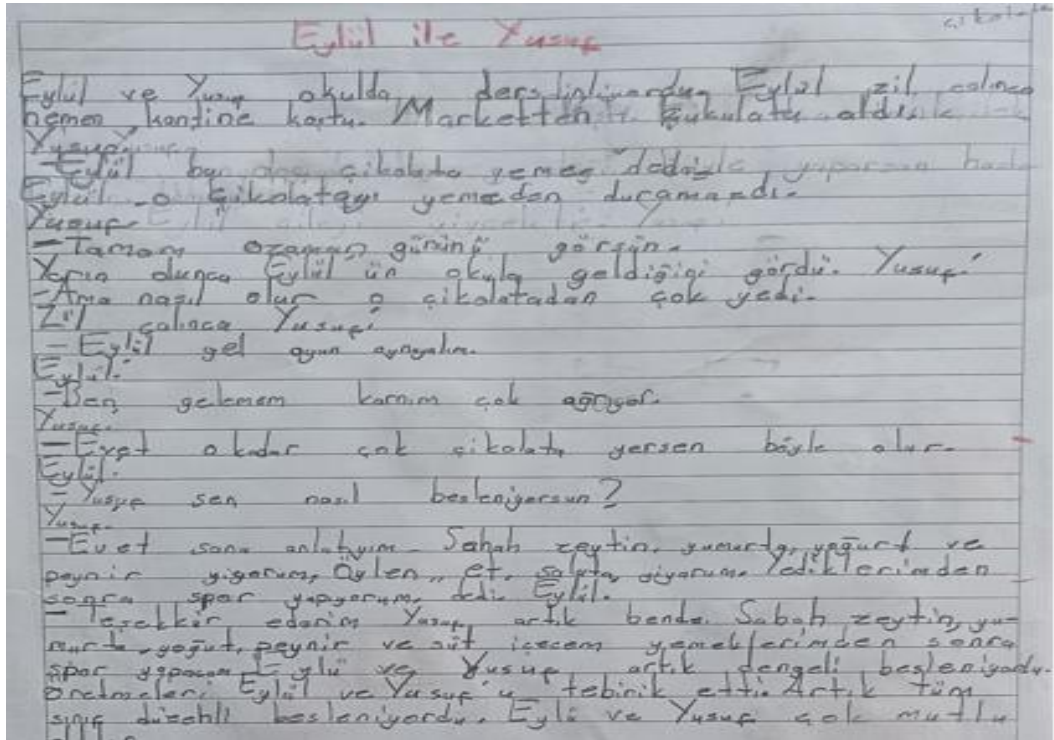 çikolata
Eylül ile Yusuf
Eylul ve Yusuf okulda ders dinliyordu. Eylül zil calınca
hemen kantine koştu. Marketten aldı.
Yusuf
-Eylül çikolata yemeg
Eylül o çikolatayı yemeden duramazdı.
Yusuf
-Tamam ozaman gününü görsün.
Yarın olunca Eylül ün okula geldiğini gördü. Yusuf:
-Ama nasıl olur o çikolatadan çok yedi.
Zil çalınca Yusuf:
-Eylül gel oyun oynayalım.
Eylül:
-Ben gelemem karnım çok ağrıyor.
Yusuf.
-Evet okadar çok çikolata yersen böyle olur.
Eylül:
-Yusuf sen nasıl besleniyorsun?
Yusuf.
-Evet sana anlatıyım. Sabah zeytin, yumurta, yoğurt ve
peynir yiyorum, Öylen, et, salata yiyorum. Yediklerimden
sonra spor yapıyorum, dedi. Eylül.
- Teşekkür ederim Yusuf artık bende. Sabah zeytin, yu-
murta, yoğut, peynir ve süt içecem yemeklerimden sonra
spor yapacam Eylü ve Yusuf artık dengeli besleniyodu.
Eylül ve Yusuf'u tebirik etti. Artık tüm
sınıf düzenli besleniyordu. Eylü ve Yusuf çok mutlu